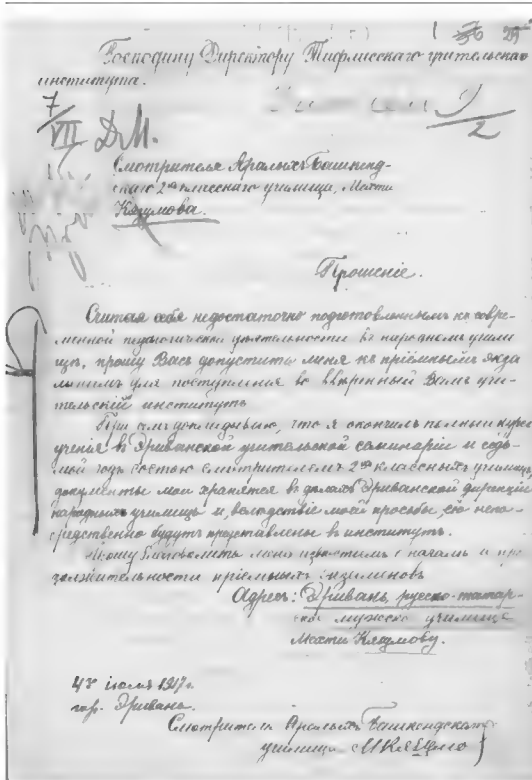 Господину Директору Тифлисскаго учительскаго
института.
7/VII
2
Смотрителя Аралыхъ-Башкенд-
скаго 2хъ класснаго училища, Мехти
Кязумова.
Прошеніе.
Считая себя недостаточно подготовленнымъ къ совре-
менной педагогической дѣятельности въ народномъ учили
щѣ, прошу Васъ допустить меня къ пріемнымъ экза
менамъ для поступленія во ввѣренный Вамъ учи-
тельскій институтъ
При семъ докладываю, что я окончилъ полный курсъ
ученія въ Эриванской учительской семинаріи и седь-
мой годъ состою смотрителемъ 2хъ классныхъ училищъ,
документы мои хранятся въ дѣлахъ Эриванской дирекціи
народныхъ училищъ и, вслѣдствіе моей просьбы, ею непо-
средственно будутъ представлены въ институтъ.
Прошу меня о началѣ и про
должительности пріемныхъ экзаменовъ
Адресъ: Эривань, русско-татар-
ское мужское училище
Мехти Кязумову.
іюля 1917 г.
гор. Эривань.
Смотритель Аралыхъ Башкендскаго
училища МКязумо